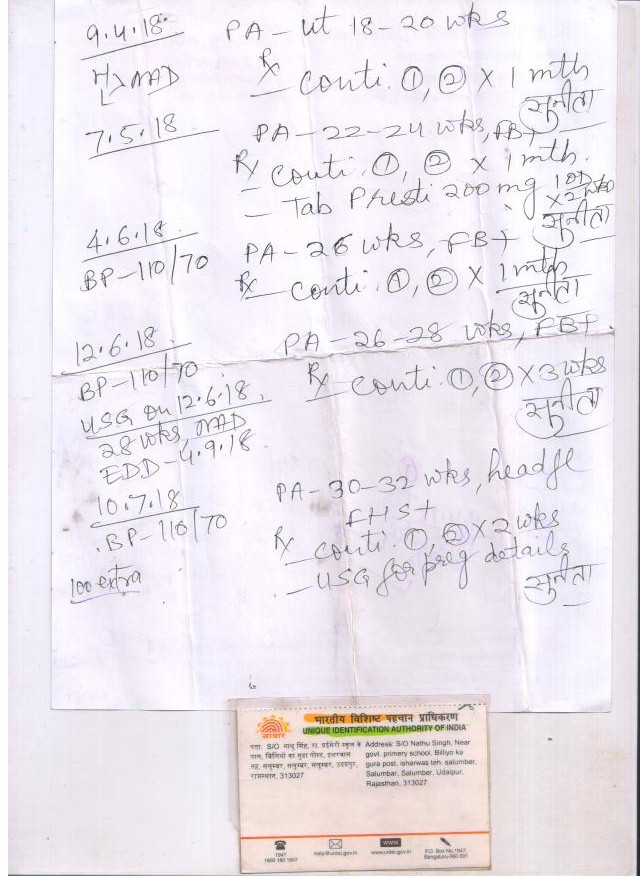 9.4.18. PA - ut 18-20 wks
H/o NAD Rx - conti. ①, ② x 1 mth
सुनीता
7.5.18 PA - 22-24 wks, FB+
Rx conti. ①, ② x 1 mth.
- Tab Presti 200mg 1 OD
x 2 wks
सुनीता
4.6.18. PA - 26 wks, FB+
BP-110/70 Rx conti. ①, ② x 1 mth
सुनीता
12.6.18. PA - 26-28 wks, FB+
BP-110/70 Rx conti. ①, ② x 3 wks
सुनीता
USG on 12.6.18.
28 wks, NAD
EDD - 4.9.18
10.7.18 PA - 30-32 wks, head fl
FHS+
.BP-110/70 Rx conti. ①, ② x 2 wks
- USG for preg details
सुनीता
100 extra
भारतीय विशिष्ट पहचान प्राधिकरण
UNIQUE IDENTIFICATION AUTHORITY OF INDIA
आधार
पता: S/O नाथू सिंह, रा. प्राईमेरी स्कूल के
पास,
राजस्थान, 313027
Address: S/O Nathu Singh, Near
govt. primary school, Billiyo ka
gura post, isharwas teh. salumber,
Salumbar, Salumber, Udaipur,
Rajasthan, 313027
1947
1800 180 1947
help@uidai.gov.in
www
www.uidai.gov.in
P.O. Box No.1947,
Bengaluru-560 001